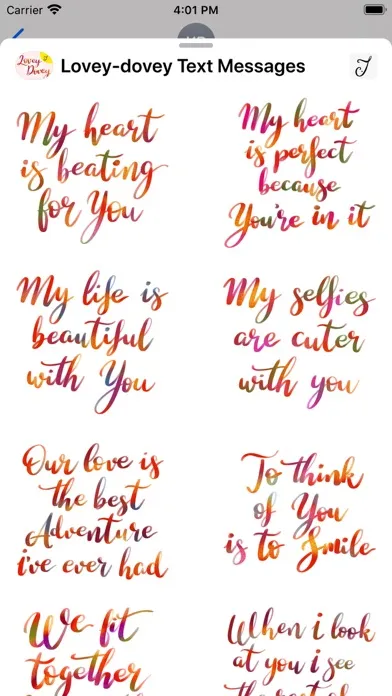 Carrier
4:01 PM
Lovey
Dovey
Lovey-dovey Text Messages
My heart
is beating
for You
My heart
is perfect
because
You're in it
My life is
beautiful
with You
My selfies
are cuter
with you
Our love is
the best
Adventure
i've ever had
To think
of You
is to Smile
We fit
together
When i look
at you i see